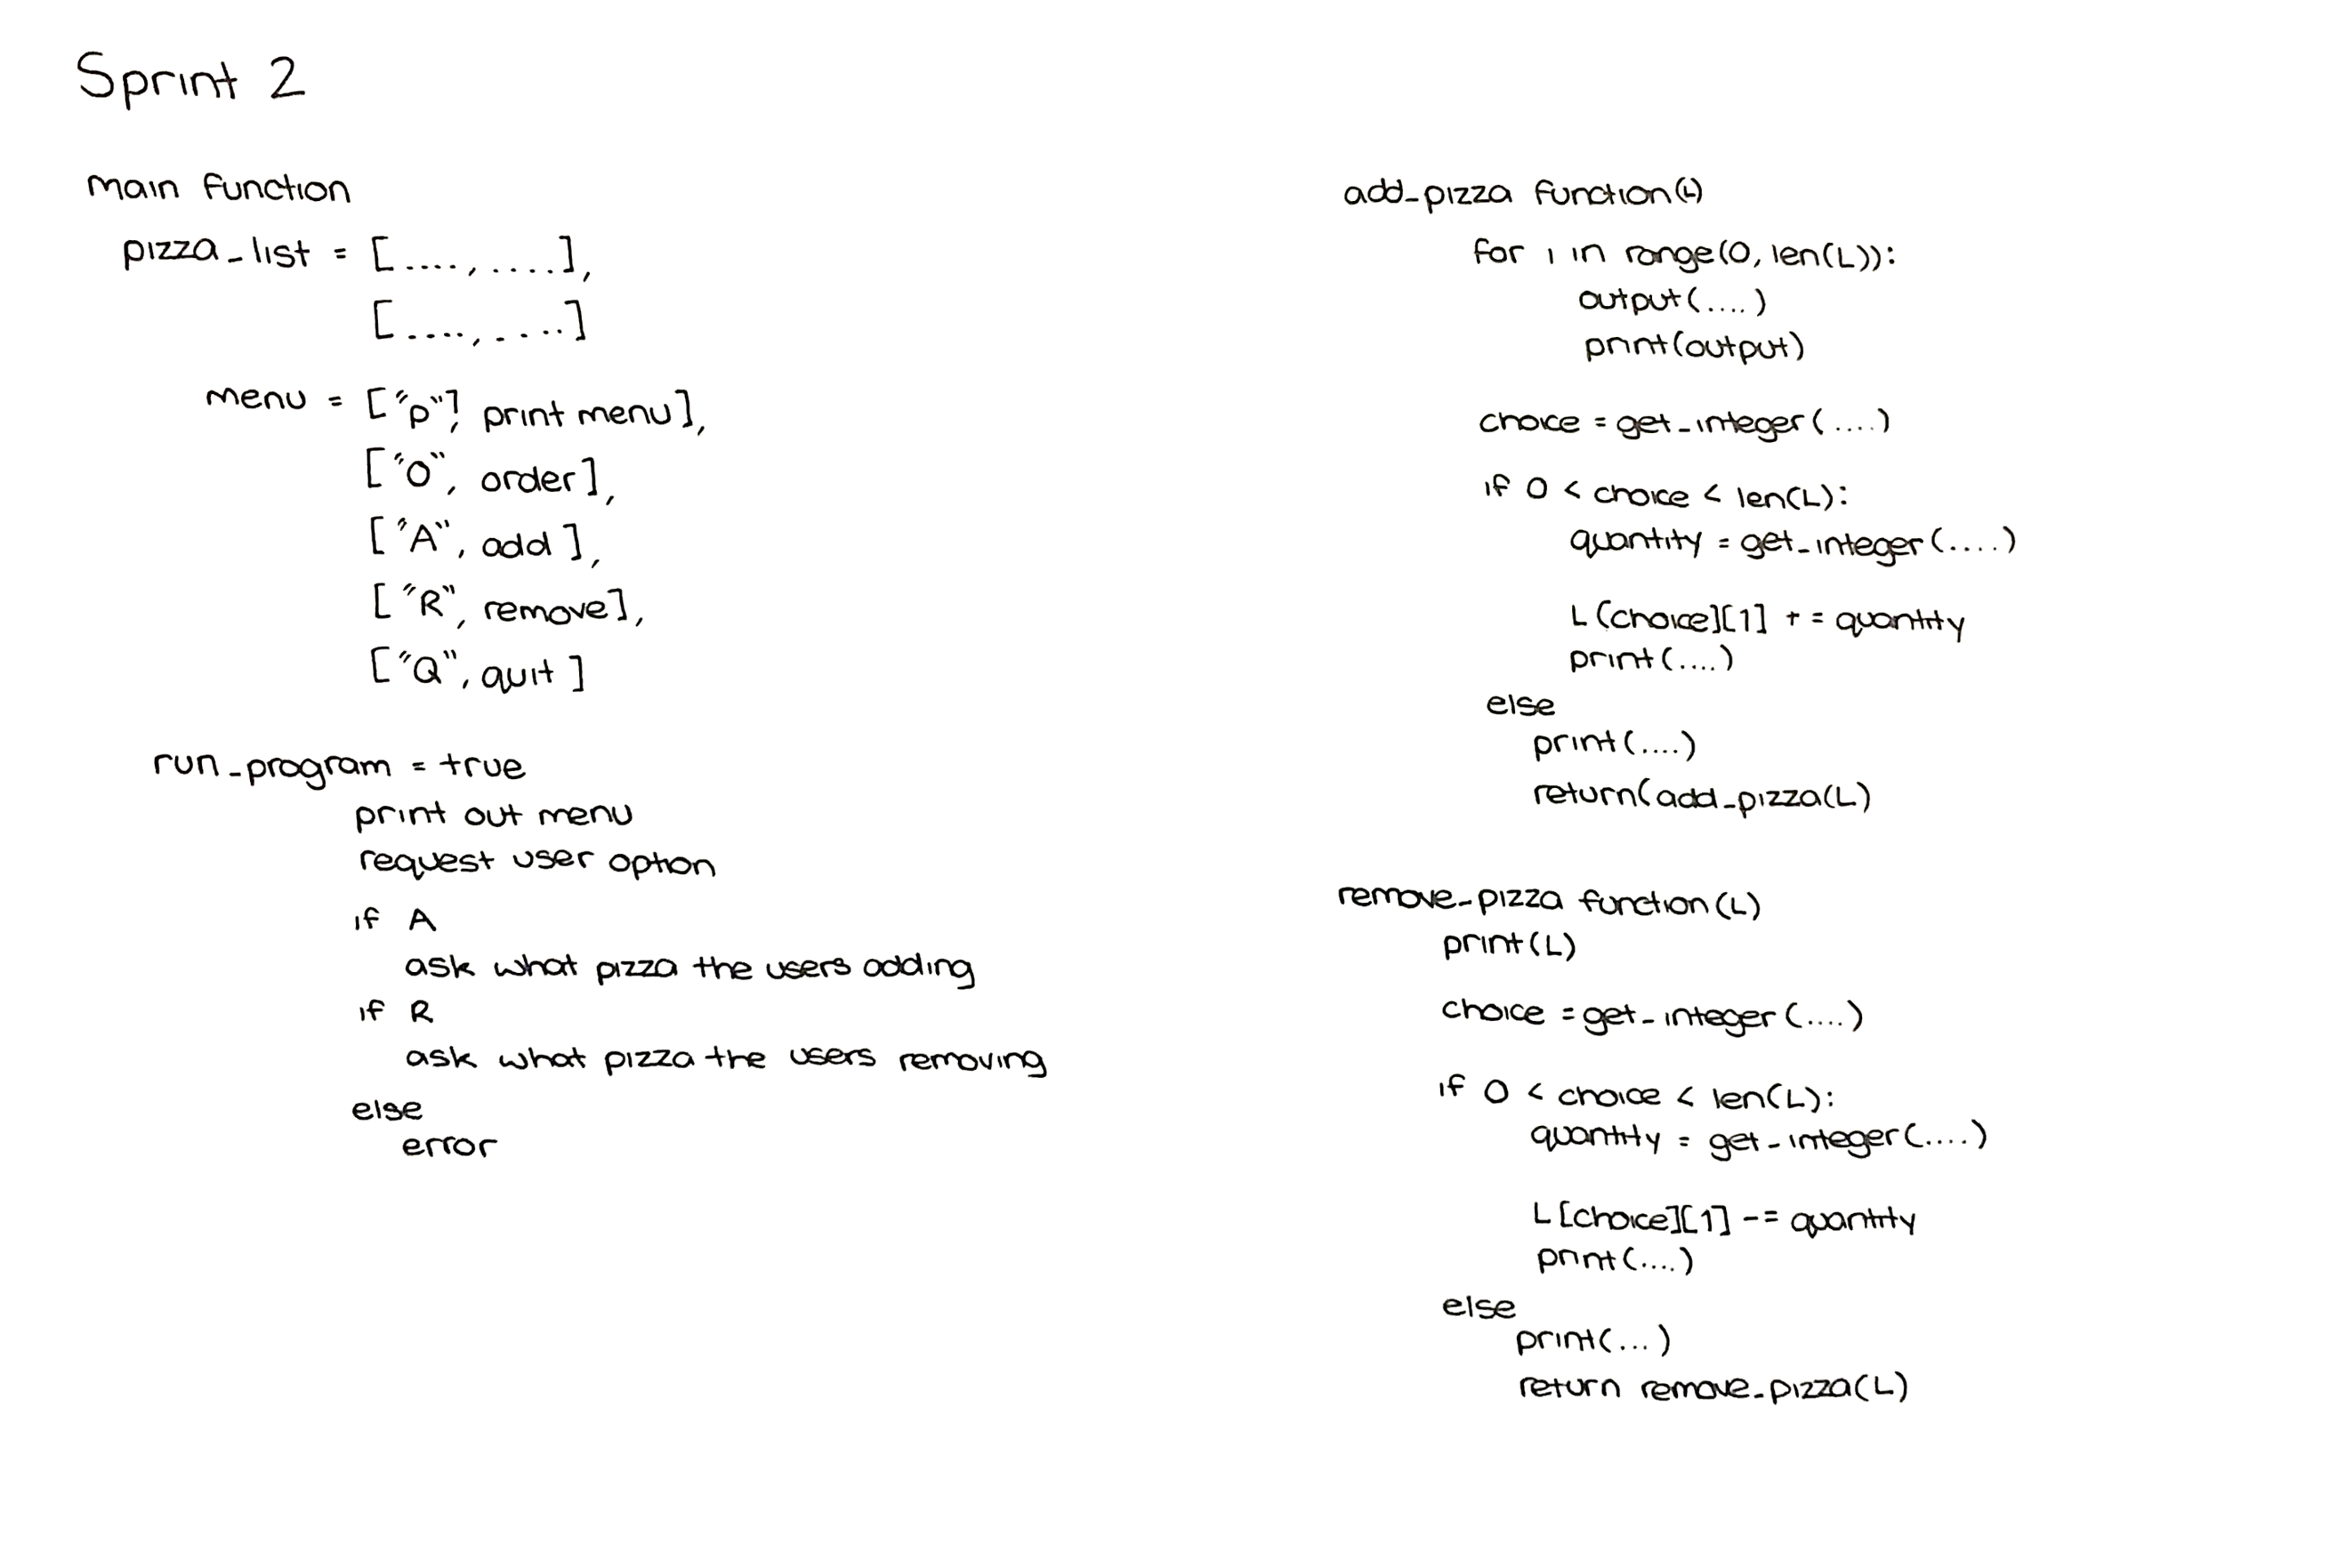 Sprint 2
main function
pizza_list = [...., ....],
[...., ....]
menu = ["p", print menu],
["O", order],
["A", add],
["R", remove],
["Q", quit]
run_program = true
print out menu
request user option
if A
ask what pizza the users adding
if R
ask what pizza the users removing
else
error
add_pizza function(L)
for i in range(0, len(L)):
output(....)
print(output)
choice = get_integer(....)
if 0 < choice < len(L):
quantity = get_integer(....)
L(choice][1] += quantity
print(....)
else
print(....)
return(add_pizza(L)
remove_pizza function(L)
print(L)
choice = get_integer(....)
if 0 < choice < len(L):
quantity = get_integer(....)
L[choice][1] -= quantity
print(....)
else
print(...)
return remove_pizza(L)